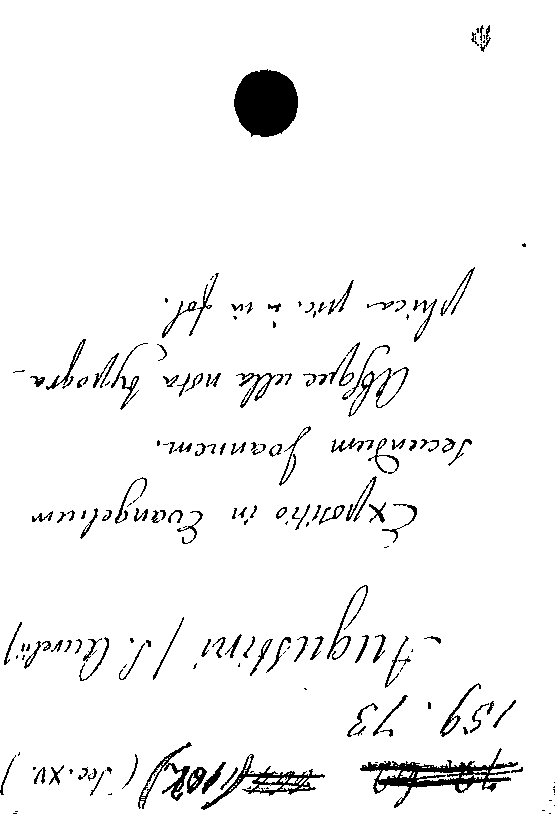 (Sec. XV.)
159.73
Augustini (S. Aurelii)
Expositio in Evangelium
secundum Joannem.
Absque ulla nota typogra-
phica in fol.